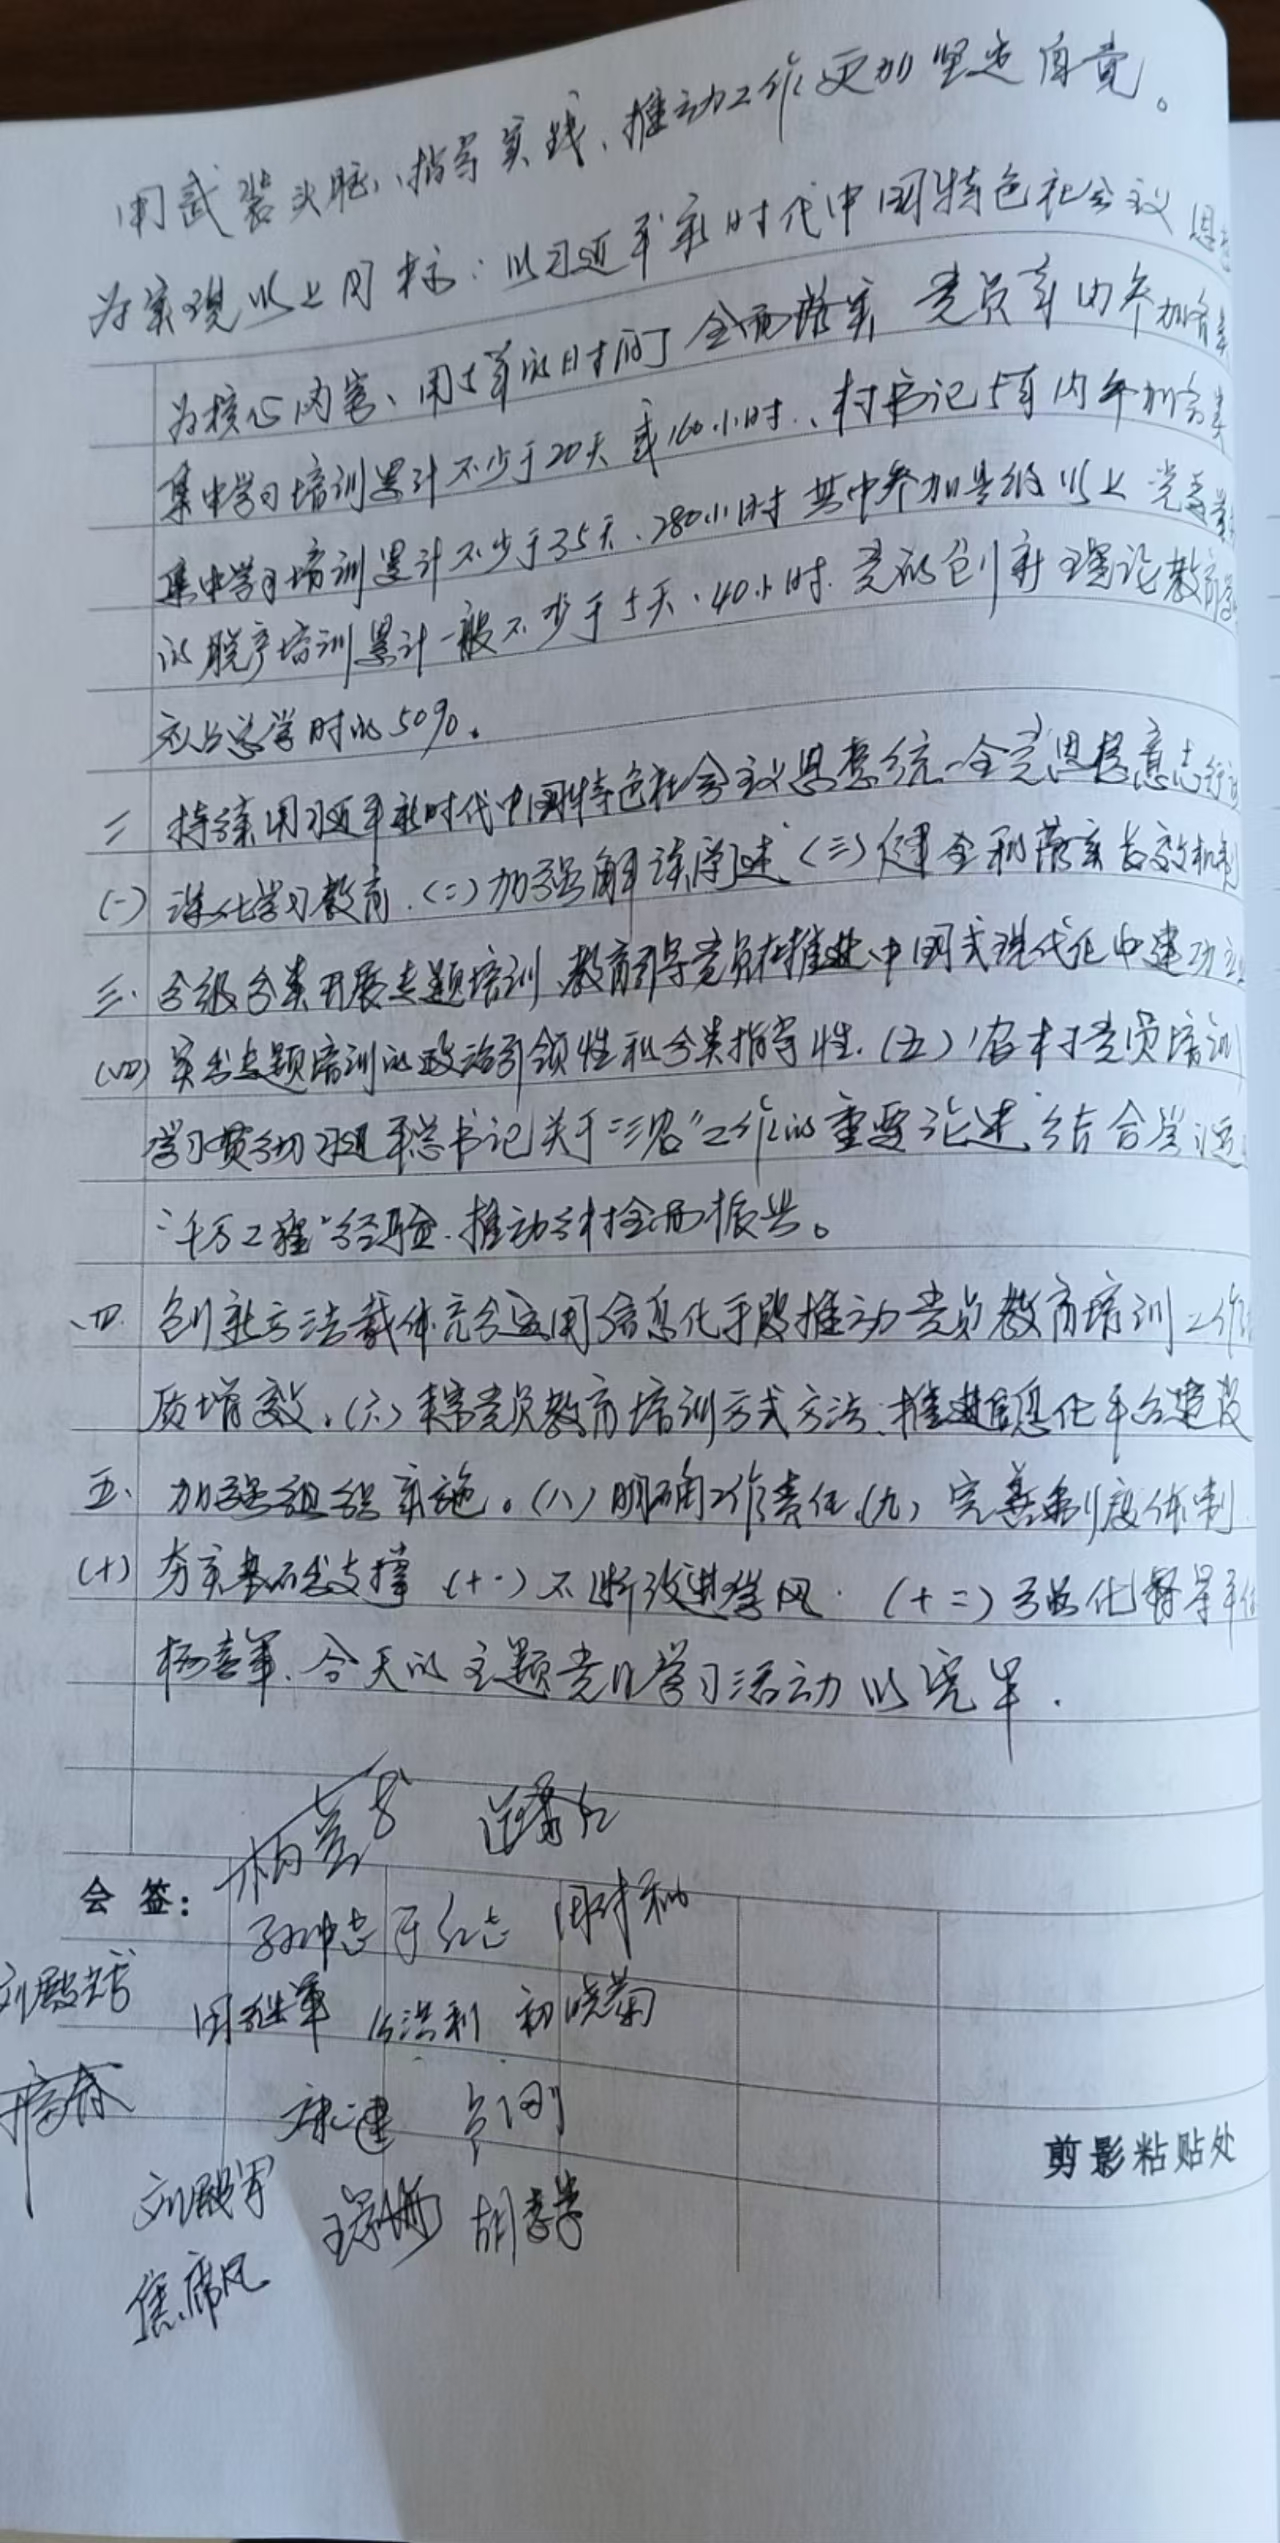 用武装头脑、指导实践、推动工作更加坚定自觉。
为实现以上目标：以习近平新时代中国特色社会主义思想
为核心内容、用5年的时间 全面落实 党员年内参加各类
集中学习培训累计不少于20天或160小时、村书记5年内参加各类
集中学习培训累计不少于35天、280小时 其中参加县级以上党委
的脱产培训累计一般不少于5天、40小时. 党的创新理论教育
应占总学时的50%。
二 持续用习近平新时代中国特色社会主义思想统一全党思想意志行动
(一) 深化学习教育.(二)加强解读阐述(三)健全和落实长效机制
三. 分级分类开展专题培训、教育引导党员在推进中国式现代化中建功立业
(四) 突出专题培训的政治引领性和分类指导性.(五)农村党员培训
学习贯彻习近平总书记关于"三农"工作的重要论述 结合学习运
"千万工程"经验.推动乡村全面振兴。
四. 创新方法载体充分运用信息化手段推动党员教育培训工作
质增效。(六) 丰富党员教育培训方式方法.推进信息化平台建设
五. 加强组织实施。(八)明确工作责任.(九) 完善制度体制
(十) 夯实基础支撑 (十一)不断改进学风. (十二)强化督导
杨喜军. 今天的主题党日学习活动以完毕.
会 签：
孙冲志 于红志
刘殿志 周继军 洪利 初晓菊
康建 卢刚
刘殿军 胡孝学
焦席风
剪影粘贴处